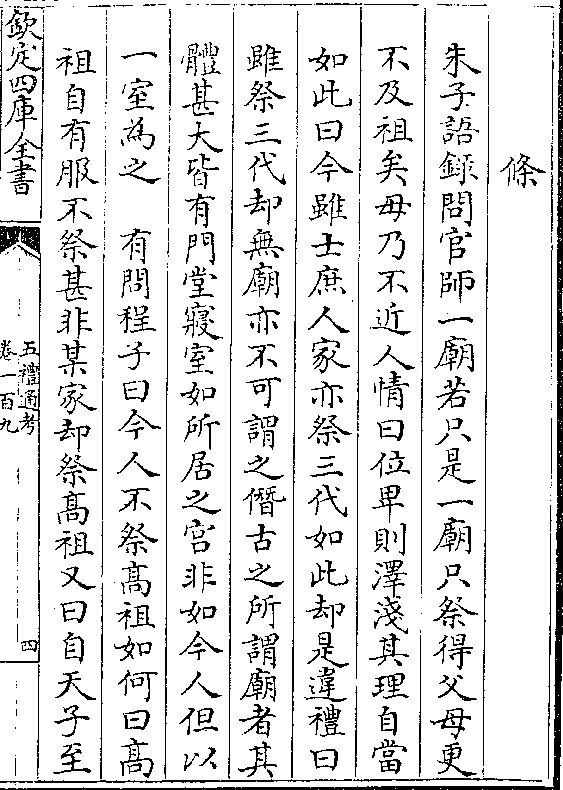 條
朱子語録問官師一廟若只是一廟只祭得父母更
不及祖矣毋乃不近人情曰位卑則澤淺其理自當
如此曰今雖士庶人家亦祭三代如此却是違禮曰
雖祭三代却無廟亦不可謂之僭古之所謂廟者其
體甚大皆有門堂寢室如所居之宫非如今人但以
一室為之　有問程子曰今人不祭髙祖如何曰髙
祖自有服不祭甚非某家却祭髙祖又曰自天子至
欽定四庫全書
五禮通考
卷一百九
四